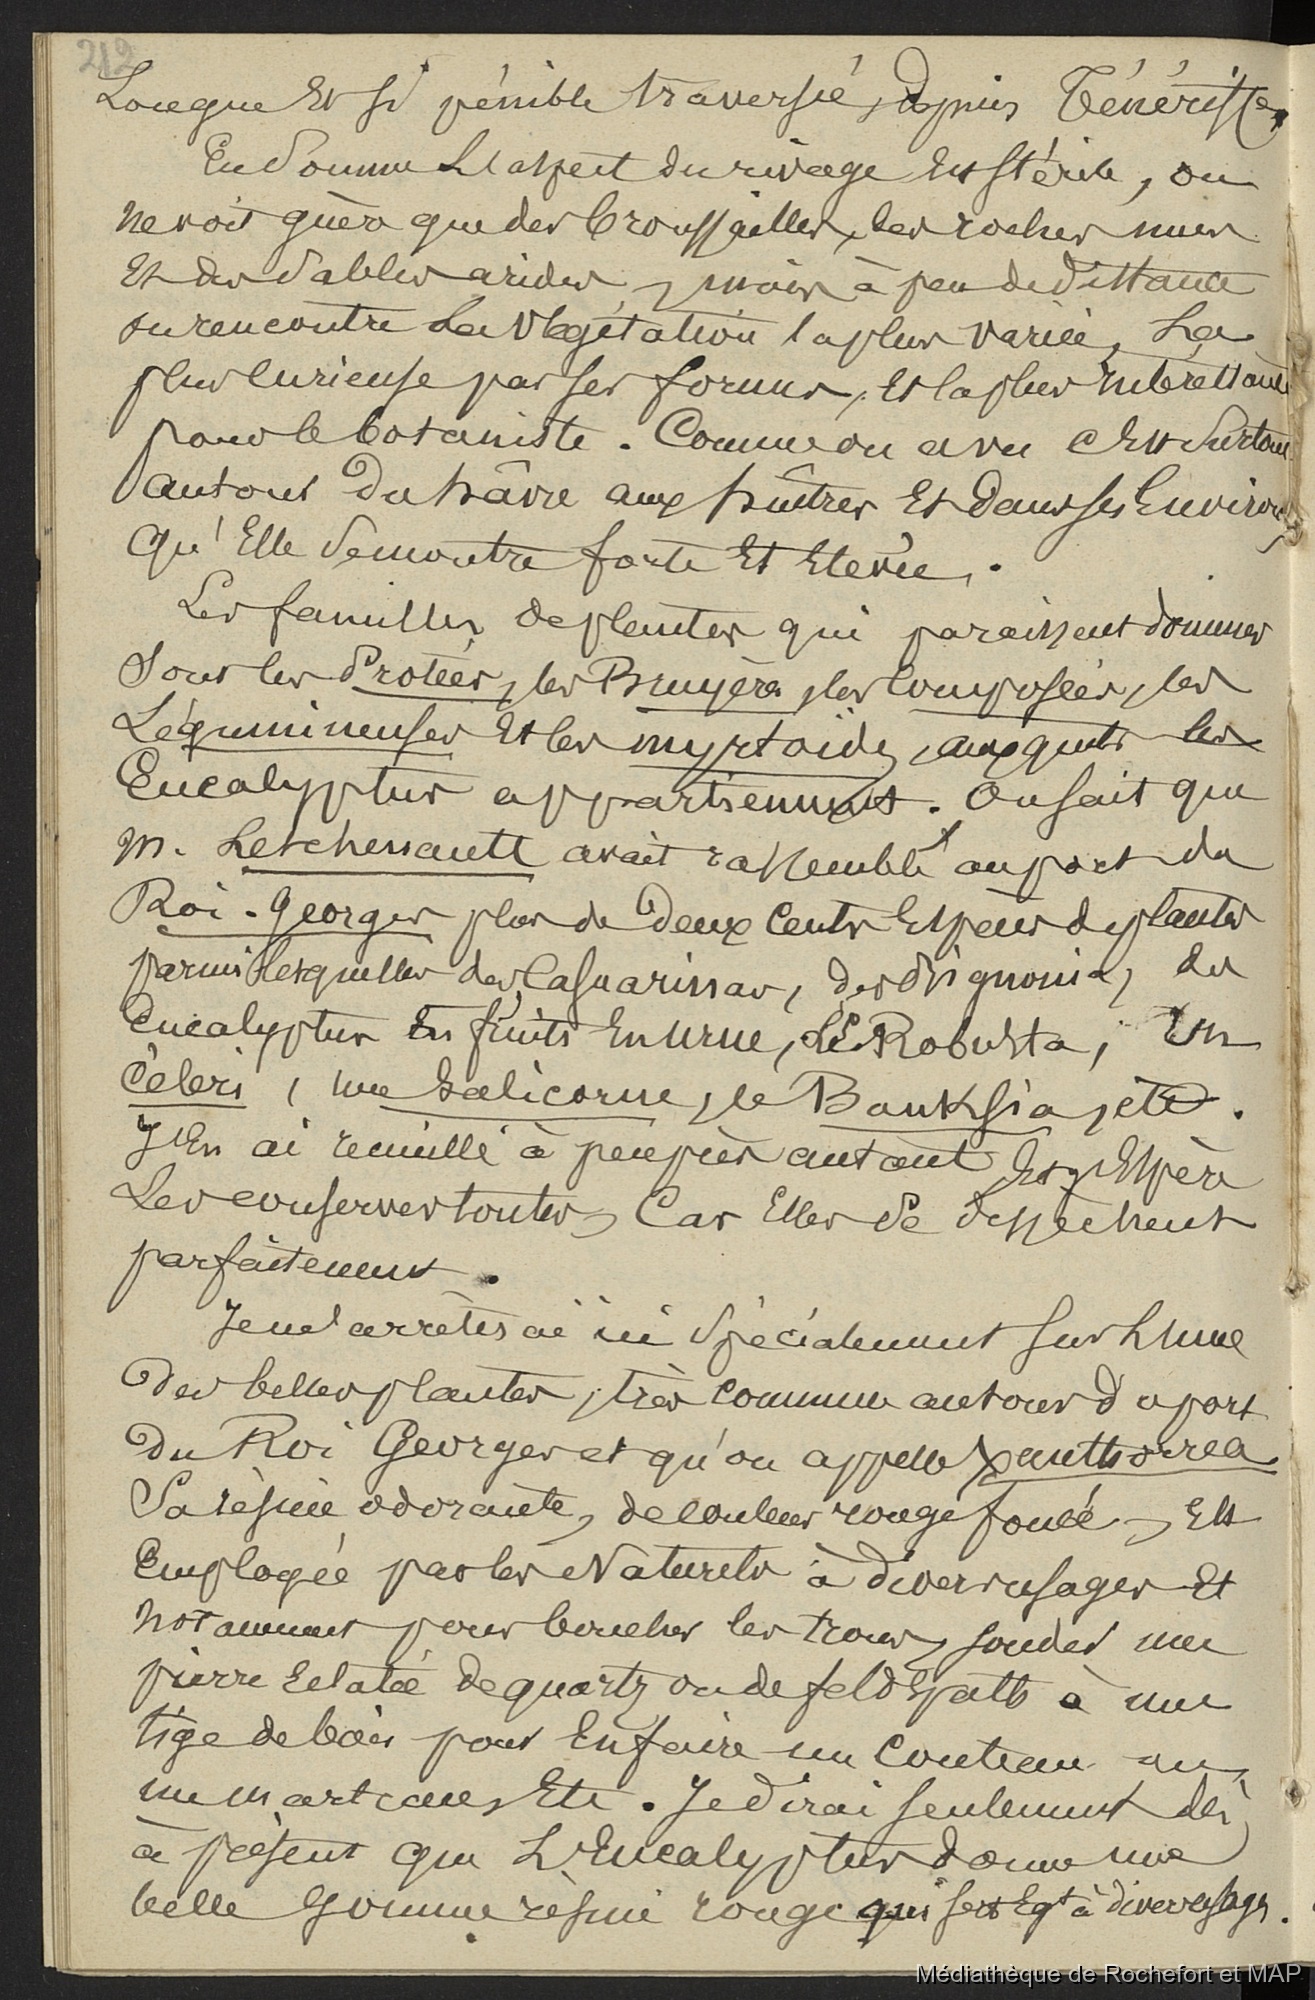 212
Longue et si pénible traversée, depuis Ténériffe.
En somme L'aspect du rivage est stérile, on
ne voit guère que des broussailles, des rochers nues
Et des sables arides, mais à peu de distance
on rencontre la végétation la plus variée, La
plus curieuse par ses formes, et la plus interéssante
pour le botaniste. Comme on a vu c'est surtout
autour du hâvre aux huîtres et dans ses Environs
qu'Elle se montre forte et elevée.
Les familles de plantes qui paraissent dominer
Sont les Protées, les Bruyères, les Composées, les
Légumineuses et les myrtoïdes, auxquels les
Eucalyptus appartiennent. On sait que
M. Leschenault avait rassemblé au port du
Roi-Georges plus de deux cents Espèces de plantes
parmi lesquelles des Casuarinas, des Bignonia, des
Eucalyptus En fruits En urne, Le Robusta, Un
Céleri, une Salicorne, le Banksia, etc.
J'En ai recueilli à peu près autant Et j'Espère
Les conserver toutes, Car Elles se dessèchent
parfaitement.
Je m'arrêterai ici spécialement sur L'une
Des belles plantes, très commune autour du port
du Roi Georges et qu'on appelle Xanthorrea
Sa résine odorante, de couleur rouge foncé, est
Employée par les Naturels à divers usages et
notamment pour boucher les trous, souder une
pierre Eclatée de quartz ou de feldspath à une
tige de bois pour En faire un Couteau ou
un marteau, Etc. Je dirai seulement dès
à présent que L'Eucalyptus donne une
belle Gomme résine rouge qui sert Egt à divers usages.
Médiathèque de Rochefort et MAP